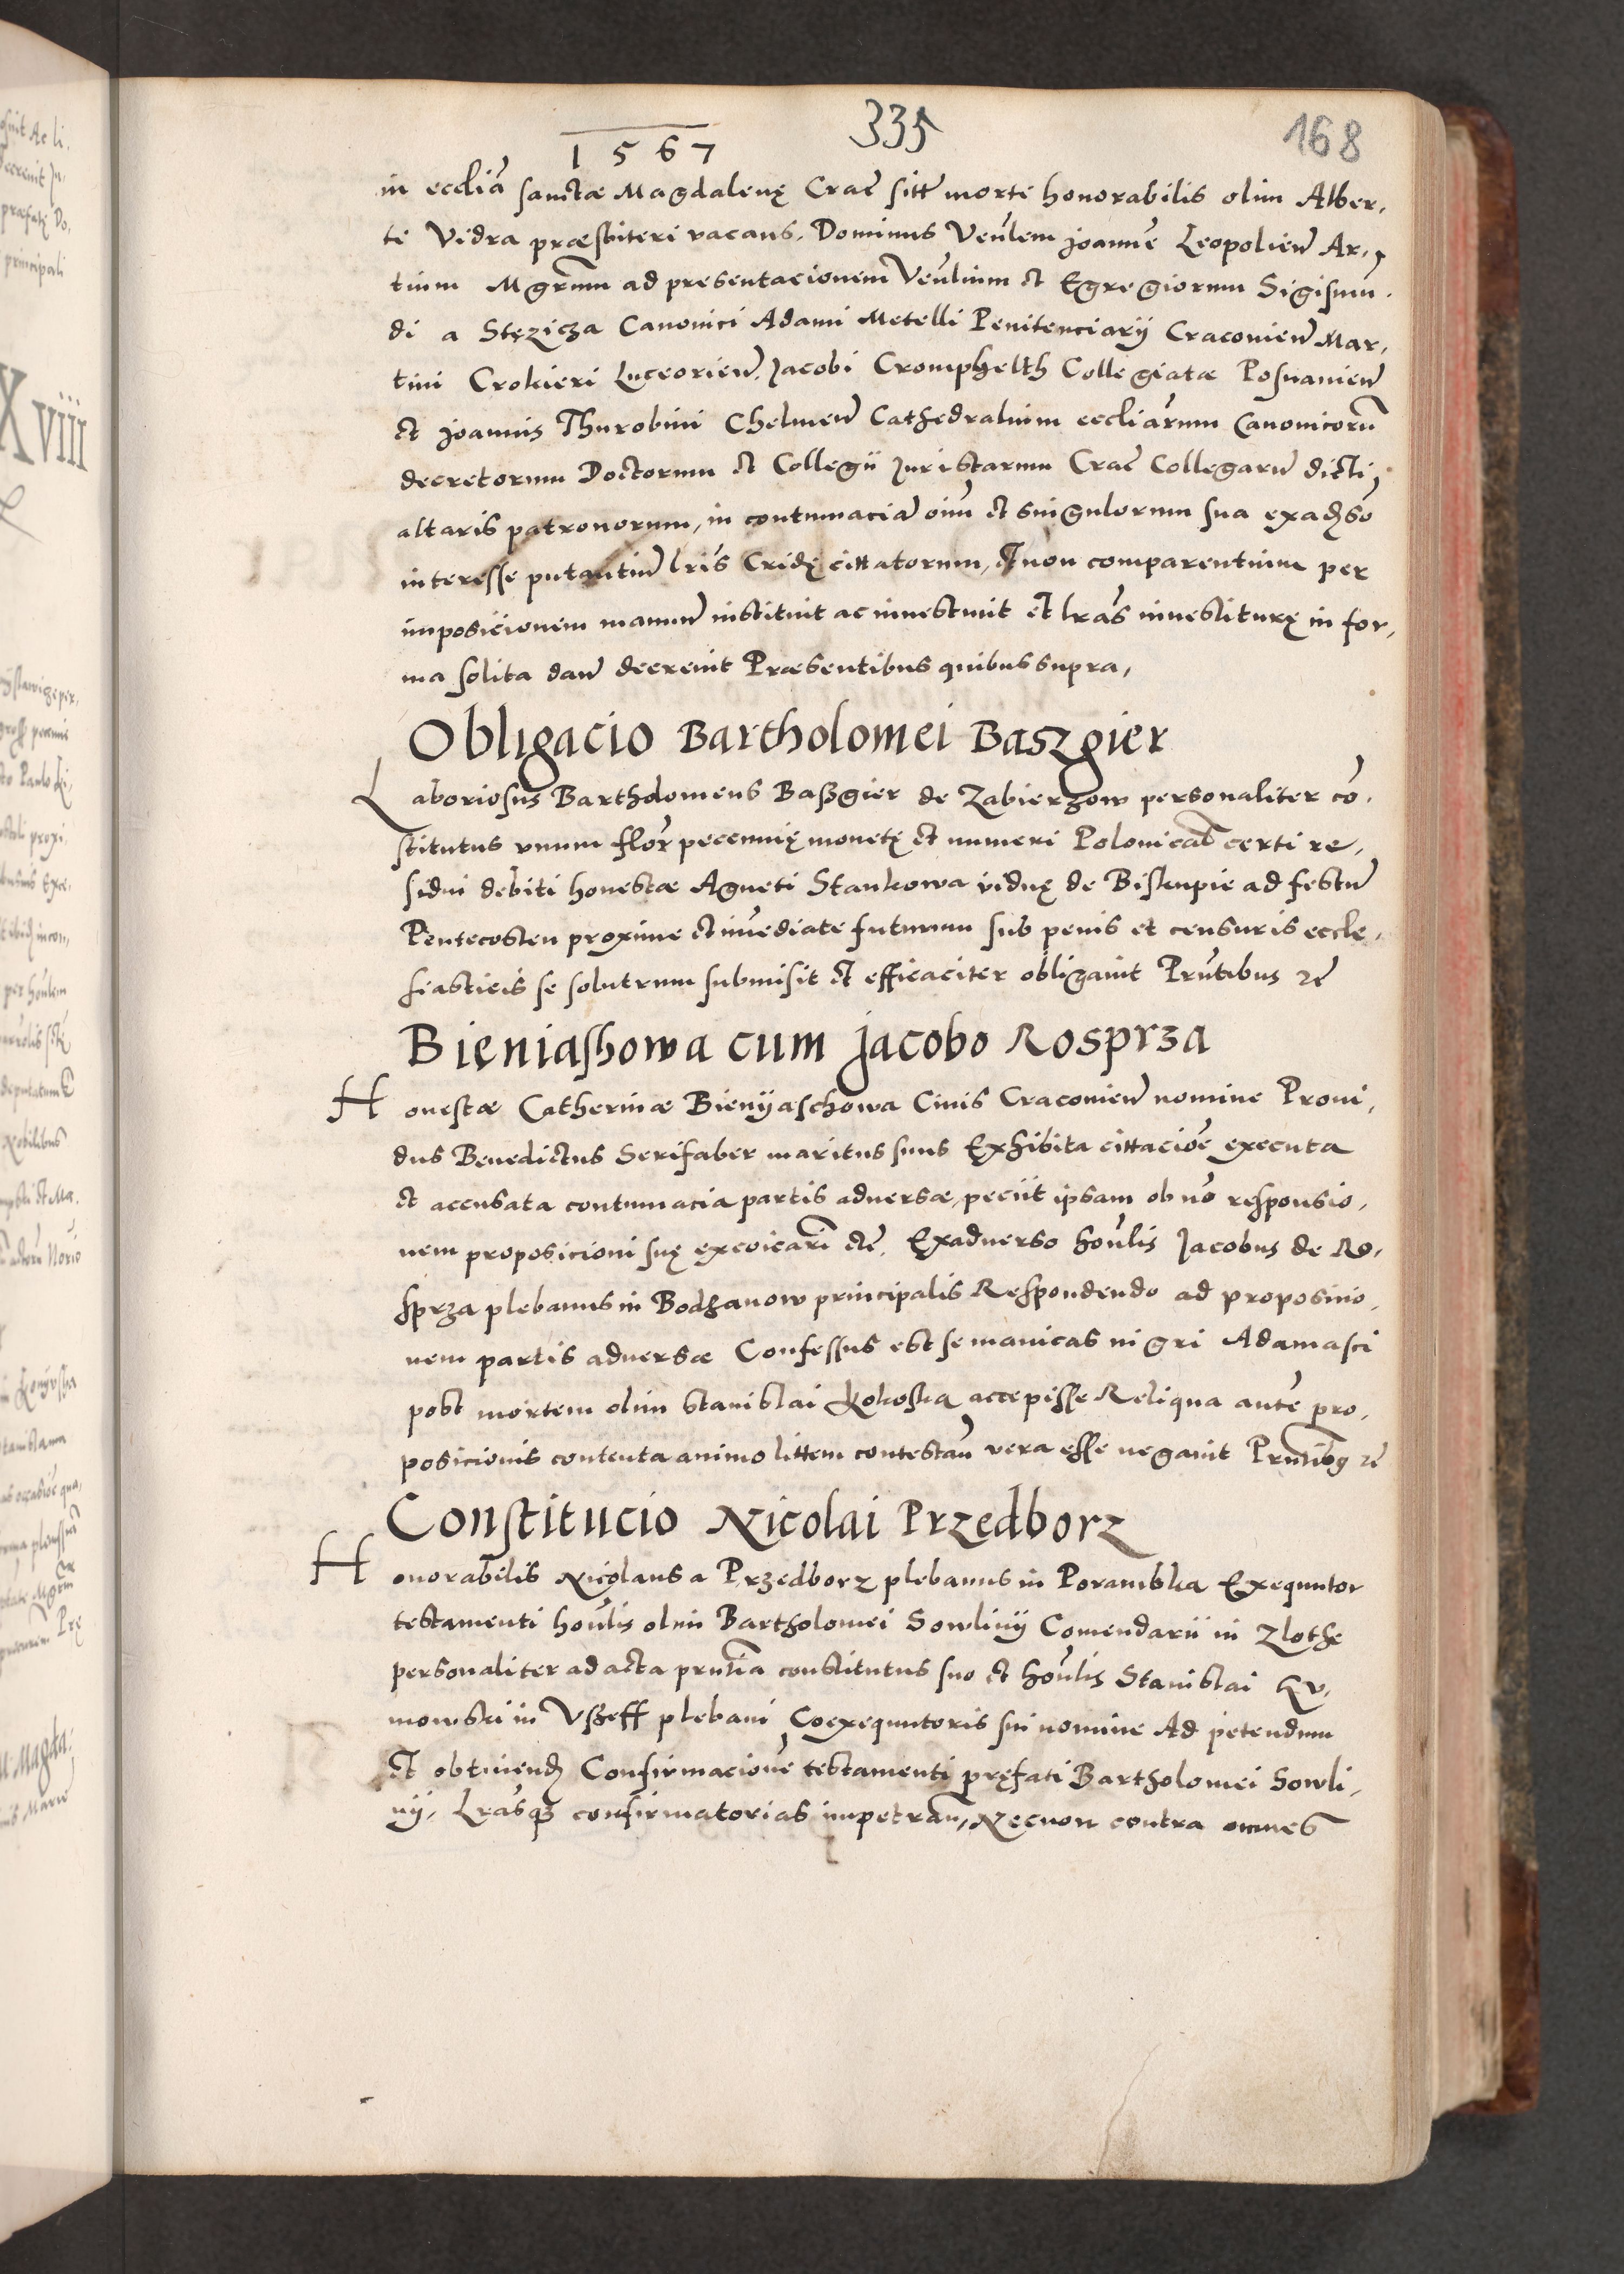 335
168
1567
in eccliā sanctæ Magdalenę Crac̄ sitt morte honorabilis olim Alber,
ti Vidra præsbiteri vacans. Dominus Ven̄lem Joannē Leopolieñ Ar,
tium Mgr̄mm ad presentacionem Ven̄lium et Egregiorum Sigismu͂,
di a Stęzicza Canonici Adami Metelli Penitenciarij Cracovieñ Mar,
tini Crokieri Luceorieñ. Jacobi Cromphelth Collegiatæ Posnanieñ
et Joannis Thurobini Chelmeñ Cathedralium eccliārum Canonicorū
decretorum Doctorum et Collegii Juristarum Crac̄ Collegarū dicti
altaris patronorum, in contumaciā oīm et singulorum sua exadso
interesse putantiū lrīs Cridę cittatorum, et non comparentium per
imposicionem manuū instituit ac investivit et lrās investiturę in for,
ma solita dañ decrevit Præsentibus quibus supra,
Obligacio Bartholomei Baszgier
Laboriosus Bartholomeus Baßgier de Zabierzow personaliter cō,
stitutus unum flor̄ pecunię monetę et numeri Polonical̄ certi re,
sidui debiti honestæ Agneti Stankowa viduę de Biskupie ad festū
Pentecosten proxime et im̄ediate futurum sub penis et censuris eccle,
siasticis se soluturum submisit et efficaciter obligavit Prn̄tibus rc̄
Bieniashowa cum Jacobo Rosprza
Honestæ Catherinæ Bienijaschowa Civis Cracovieñ nomine Provi,
dus Benedictus Serifaber maritus suus Exhibita cittaciōe executa
et accusata contumacia partis adversæ, peciit ipsam ob nō responsio,
nem proposicioni suę excōicari etc̄. Exadverso hon̄lis Jacobus de Ro,
sprza plebanus in Bodzanow principalis Respondendo ad proposicio,
nem partis adversæ Confessus est se manicas nigri Adamasci
post mortem olim Stanislai Kokoska accepisse Reliqua autē pro,
posicionis contenta animo littem contestan̄ vera esse negavit Prn̄tibus rc̄
Constitucio Nicolai Przedborz
Honorabilis Nicolaus a Przedborz plebanus in Porambka Exequutor
testamenti hon̄lis olim Bartholomei Sowlinij Comendarii in Zlothe
personaliter ad acta prn̄tia constitutus suo et hon̄lis Stanislai Ku,
mowski in Vßeff plebani Coexequutoris sui nomine Ad petendum
et obtinend̄ Confirmacionē testamenti pręfati Bartholomei Sowli,
nij, Lrāsqȝ confirmatorias impetran̄, Necnon contra omnes